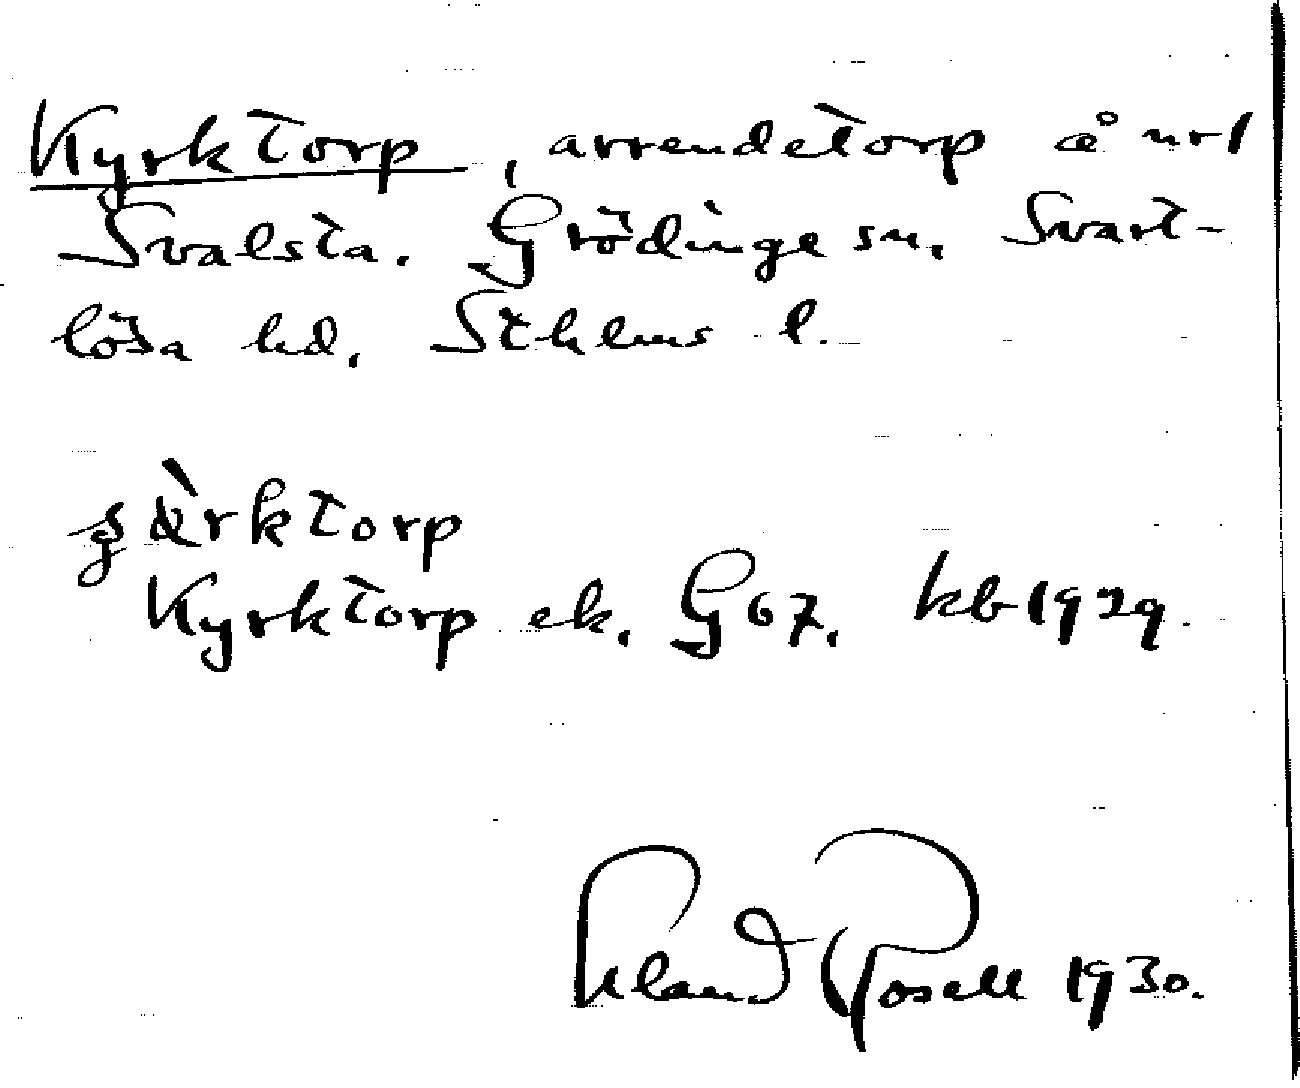 Kyrktorp, arrendetorp å nr 1
Svalsta. Grödinge sn. Svart-
lösa hd. Sthlms l.
ʒὰrktorp
Kyrktorp ek. G 67. kb 1929.
Erland Rosell 1930.